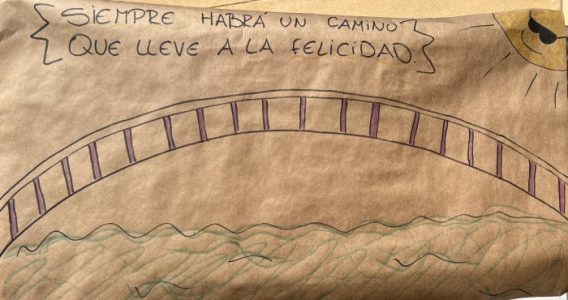 SIEMPRE HABRÁ UN CAMINO
QUE LLEVE A LA FELICIDAD.